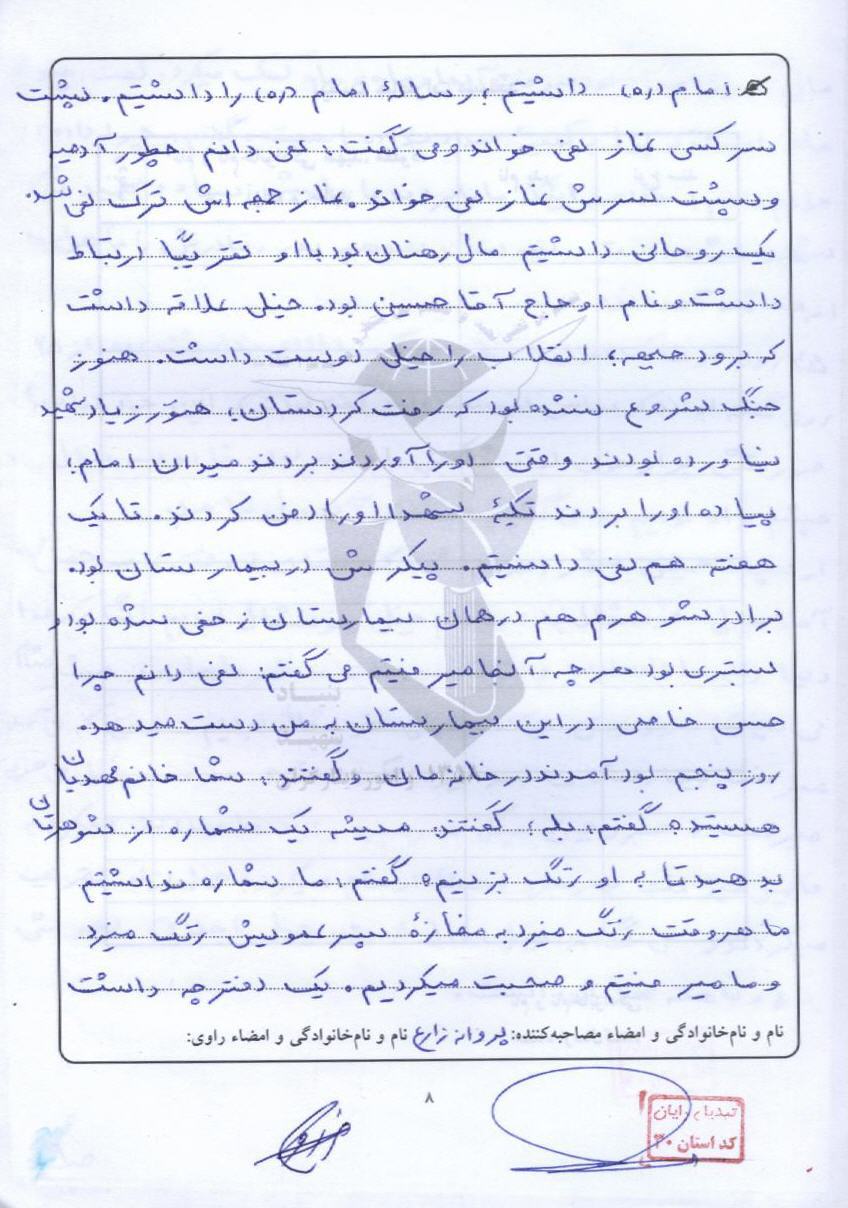 امام (ره) داشتیم، رسالهٔ امام (ره) را داشتیم. پشت
سر کسی نماز نمی خواند و می گفت: نمی دانم چطور آدمیه
و پشت سرش نماز نمی خواند. نماز جمعه اش ترک نمی شد.
یک روحانی داشتیم مال رهنان بود با او تقریباً ارتباط
داشت و نام او حاج آقا حسین بود. خیلی علاقه داشت
که برود جبهه، انقلاب را خیلی دوست داشت. هنوز
جنگ شروع نشده بود که رفت کردستان، هنوز زیاد شهید
نیاورده بودند وقتی او را آوردند بردند میدان امام،
پیاده او را بردند تکیهٔ شهدا او را دفن کردند. تا یک
هفته هم نمی دانستیم. پیکرش در بیمارستان بود.
برادر شوهرم هم در همان بیمارستان زخمی شده بود و
بستری بود هر چه آنجا میرفتیم می گفتم: نمی دانم چرا
حس خاصی در این بیمارستان به من دست میدهد.
روز پنجم بود آمدند در خانه مان و گفتند: شما خانم مهدیان
هستید؟ گفتم: بله، گفتند: میشه یک شماره از شوهرتان
بدهید تا به او زنگ بزنیم؟ گفتم: ما شماره نداشتیم
ما هر وقت زنگ میزد به مغازهٔ پسر عمویش زنگ میزد
و ما میرفتیم و صحبت میکردیم. یک دفترچه داشت
نام و نام‌خانوادگی و امضاء مصاحبه‌کننده: پروانه زارع نام و نام‌خانوادگی و امضاء راوی:
۸
بنیاد
شهید
کد استان ۳۰